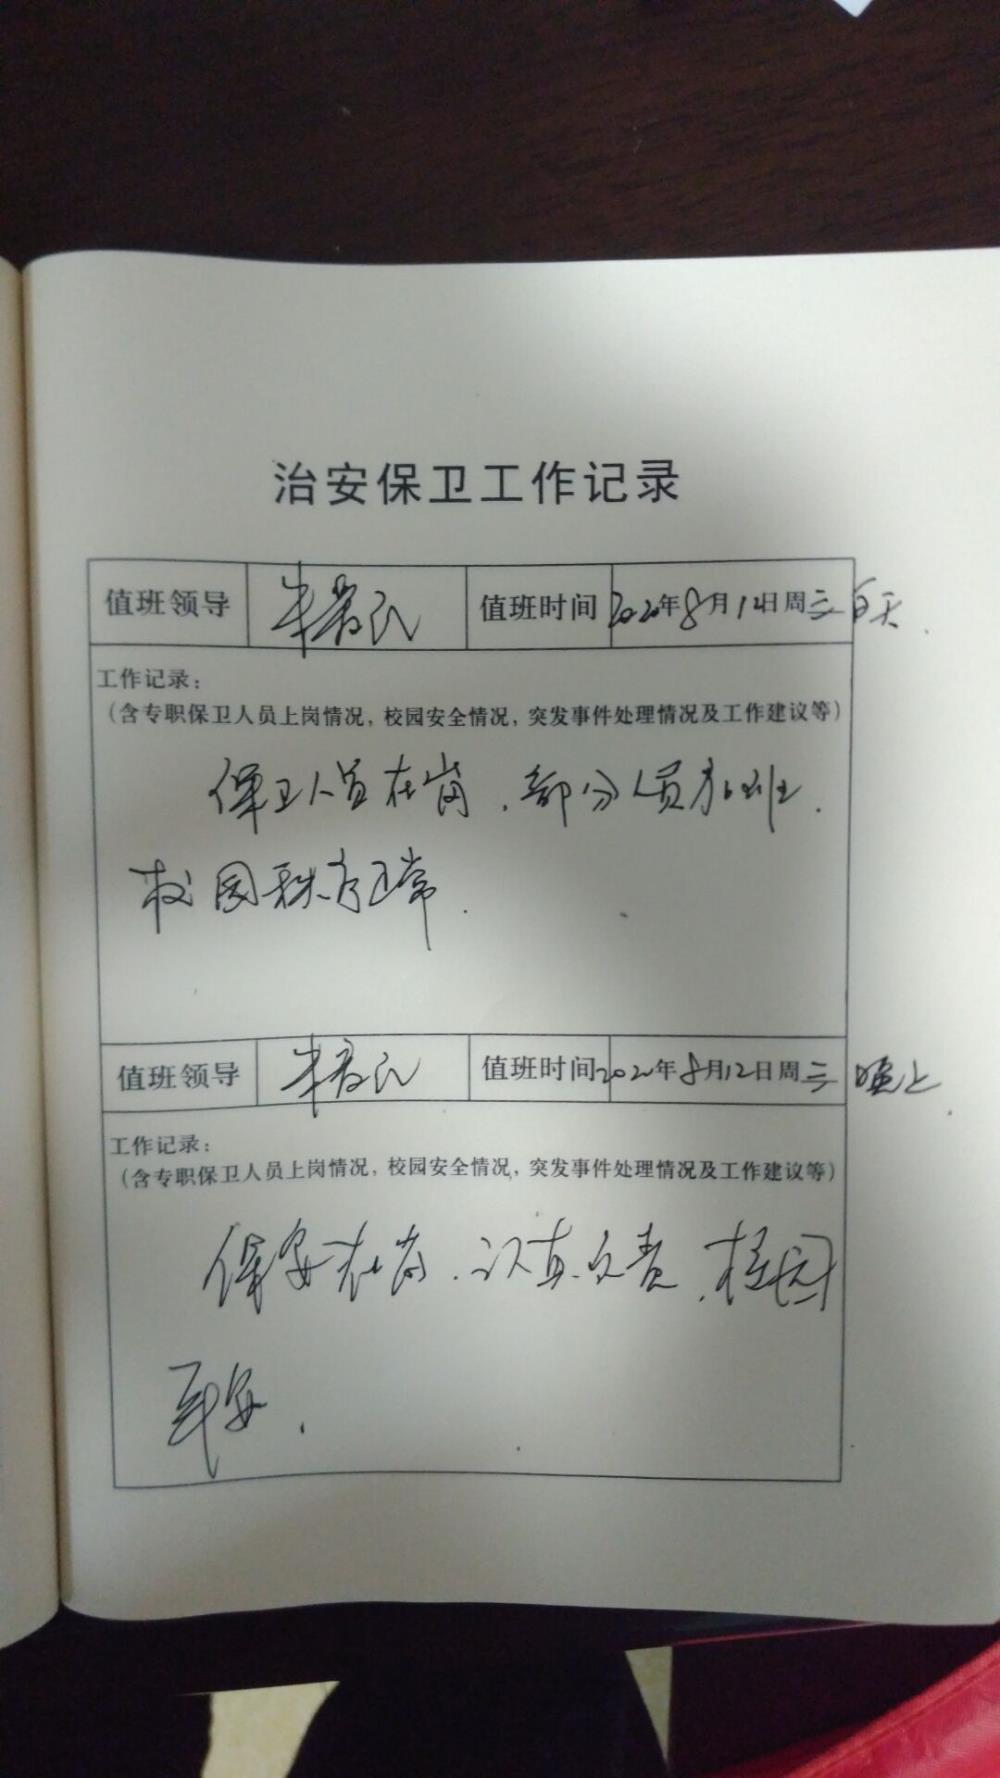 治安保卫工作记录
值班领导 值班时间 2020年8月12日周三 白天
工作记录：
（含专职保卫人员上岗情况，校园安全情况，突发事件处理情况及工作建议等）
保卫人员在岗，部分人员加班.
校园秩序正常.
值班领导 值班时间 2020年8月12日周三 晚上
工作记录：
（含专职保卫人员上岗情况，校园安全情况，突发事件处理情况及工作建议等）
保安在岗，认真负责，校园
平安.